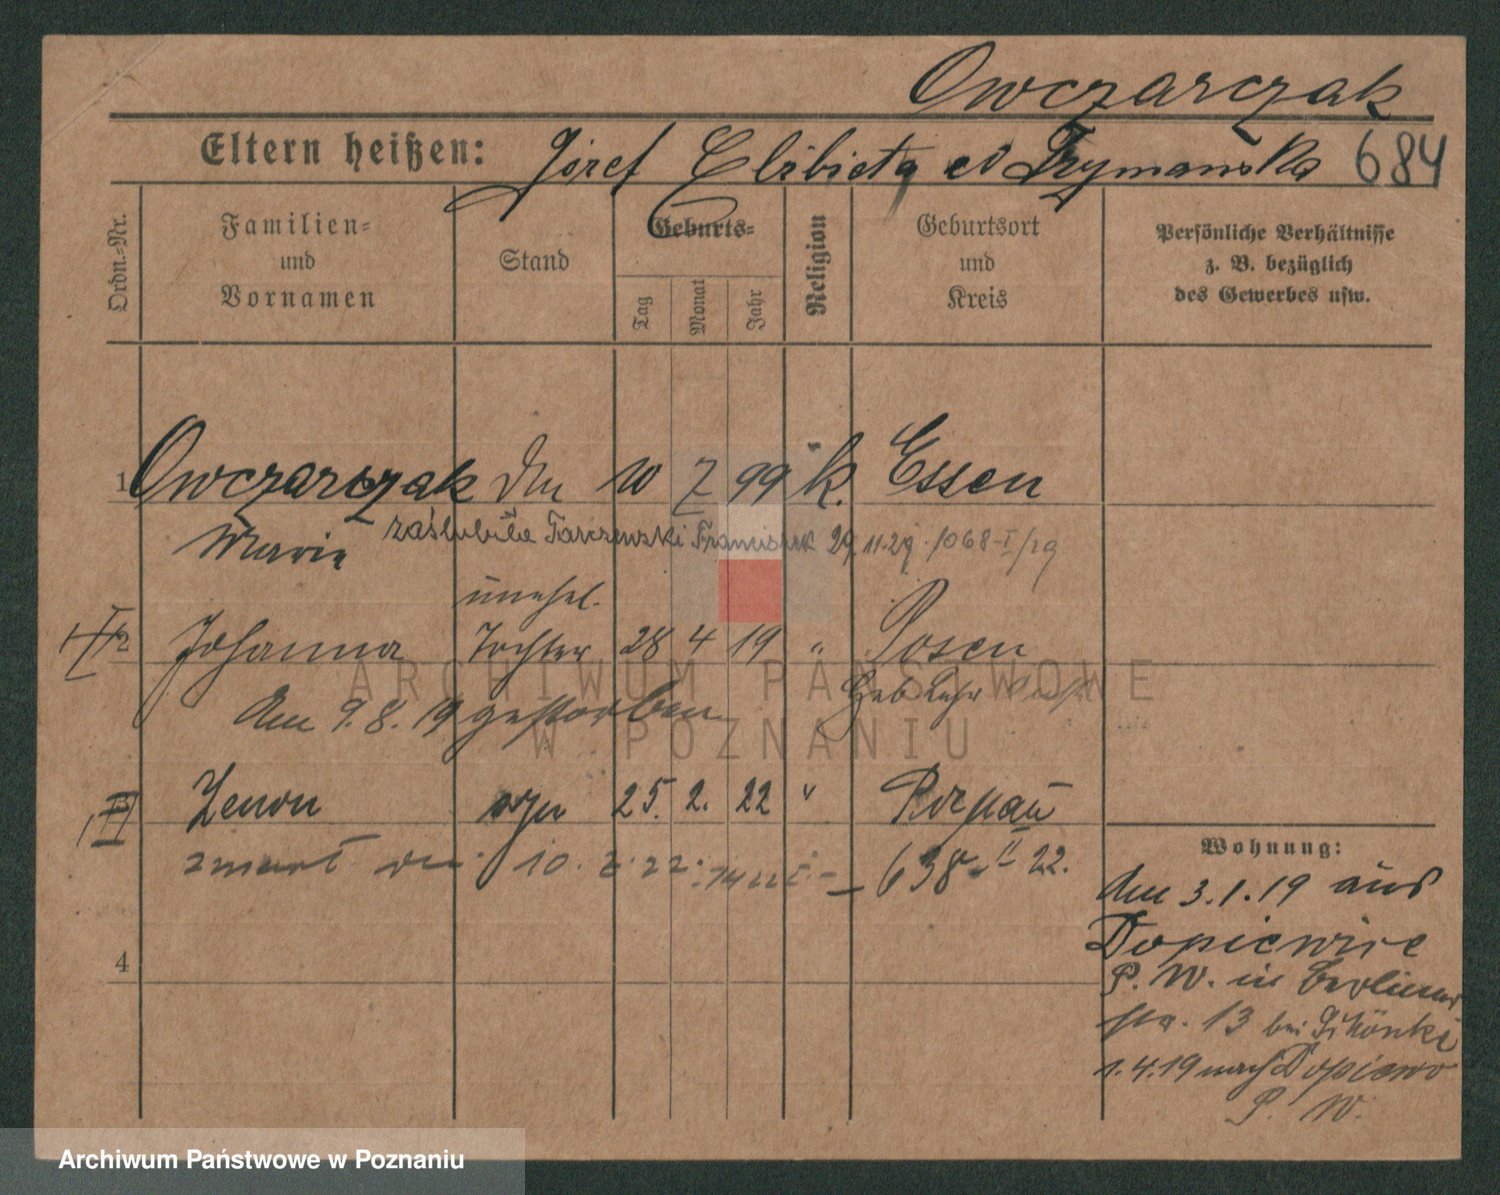 Owczarczak
Eltern heißen: Józef Elżbieta Szymanska 684
Ordn.-Nr.
Familien- und Vornamen
Stand
Geburts-
Tag
Monat
Jahr
Religion
Geburtsort und Kreis
Persönliche Verhältnisse z. B. bezüglich des Gewerbes usw.
1 Owczarczak 10 7 99 k. Essen
Marie zaślubiła Tarczewski Franciszek 29.11.29. 1068-I/29
unehel.
2 Johanna Tochter 28 4 19 " Posen
Am 9.8.19 gestorben
Zenon syn 25. 2. 22 " Poznań
10. 22 638 II 22.
4
Wohnung:
Am 3.1.19 aus
Dopiewiec
P. W. in Berliner
str. 13 bei
1.4.19 nach Dopiewo
P. W.
ARCHIWUM PAŃSTWOWE
W POZNANIU
Archiwum Państwowe w Poznaniu